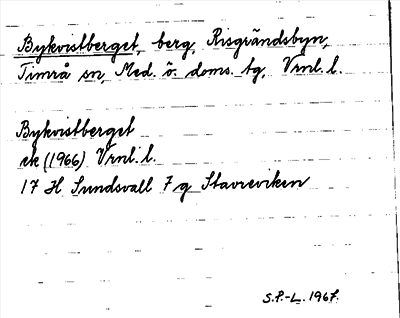 Bykvistberget, berg, Risgrändsbyn,
Timrå sn, Med. ö. doms. tg, Vrnl. l.
Bykvistberget
ek (1966) Vrnl. l.
17 H Sundsvall 7 g Stavreviken
S.P.-L. 1967.